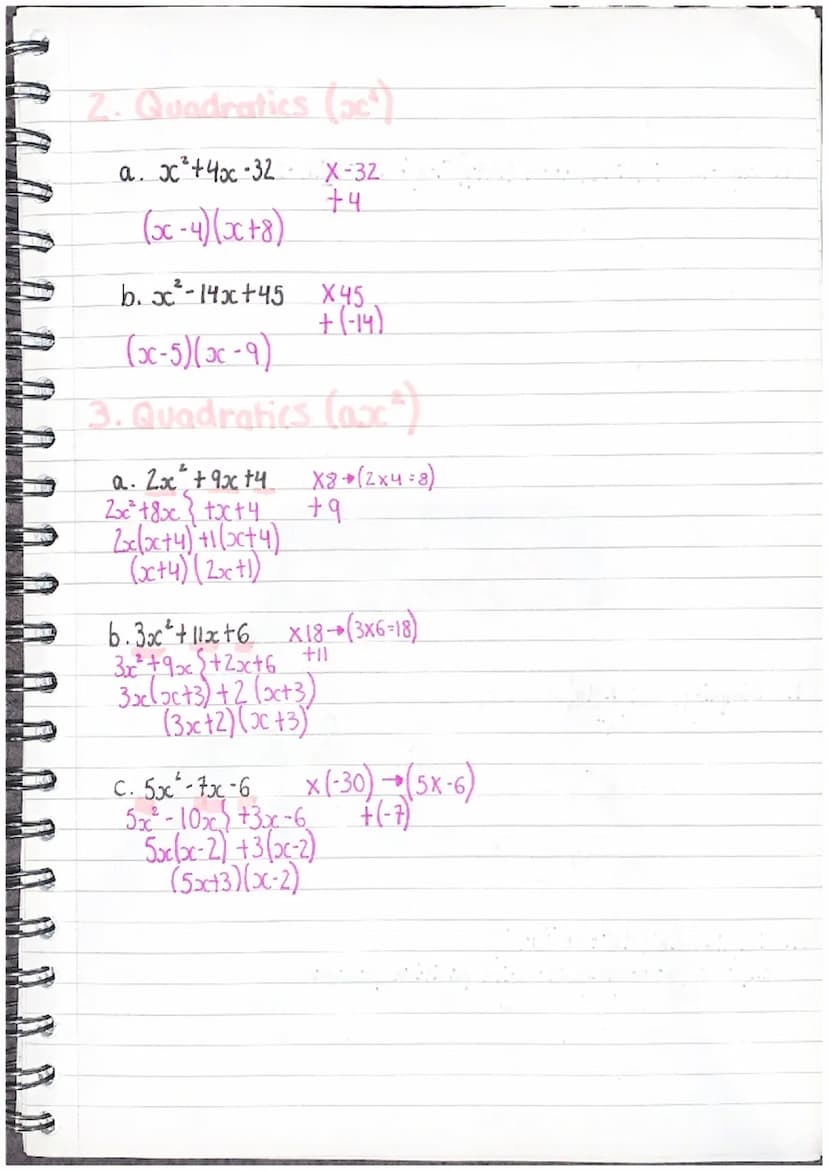 2. Quadratics (x²)
a. x²+4x-32 X-32
+4
(x-4)(x+8)
b. x²-14x+45 X45
+(-14)
(x-5)(x-9)
3. Quadratics (ax²)
a. 2x²+9x+4 X8→(2x4=8)
2x²+8x } +x+4 +9
2x(x+4)+1(x+4)
(x+4)(2x+1)
b. 3x²+11x+6 x18→(3x6=18)
3x²+9x } +2x+6 +11
3x(x+3)+2(x+3)
(3x+2)(x+3)
c. 5x²-7x-6 x(-30)→(5x-6)
5x²-10x } +3x-6 +(-7)
5x(x-2)+3(x-2)
(5x+3)(x-2)